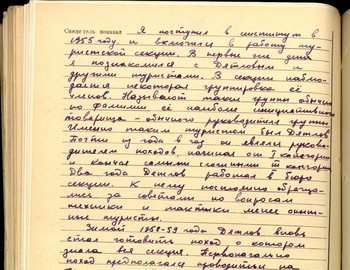 Свидетель показал Я поступил в институт в
1955 году и включился в работу ту-
ристской секции. В первые же дни
я познакомился с Дятловым и
другими туристами. В секции наблю-
дается некоторая группировка её
членов. Называют такие группы обычно
по фамилии её наиболее инициативного
товарища - обычного руководителя группы
Именно таким туристом был Дятлов
Почти из года в год он являлся руково-
дителем походов, начиная от I категории
и кончая самыми сложными III категории
Два года Дятлов работал в бюро
секции. К нему постоянно обраща-
лись за советами по вопросам
техники и тактики менее опыт-
ные туристы.
Зимой 1958-59 года Дятлов вновь
стал готовить поход о котором
знала вся секция. Первоначально
поход предполагался проводиться на